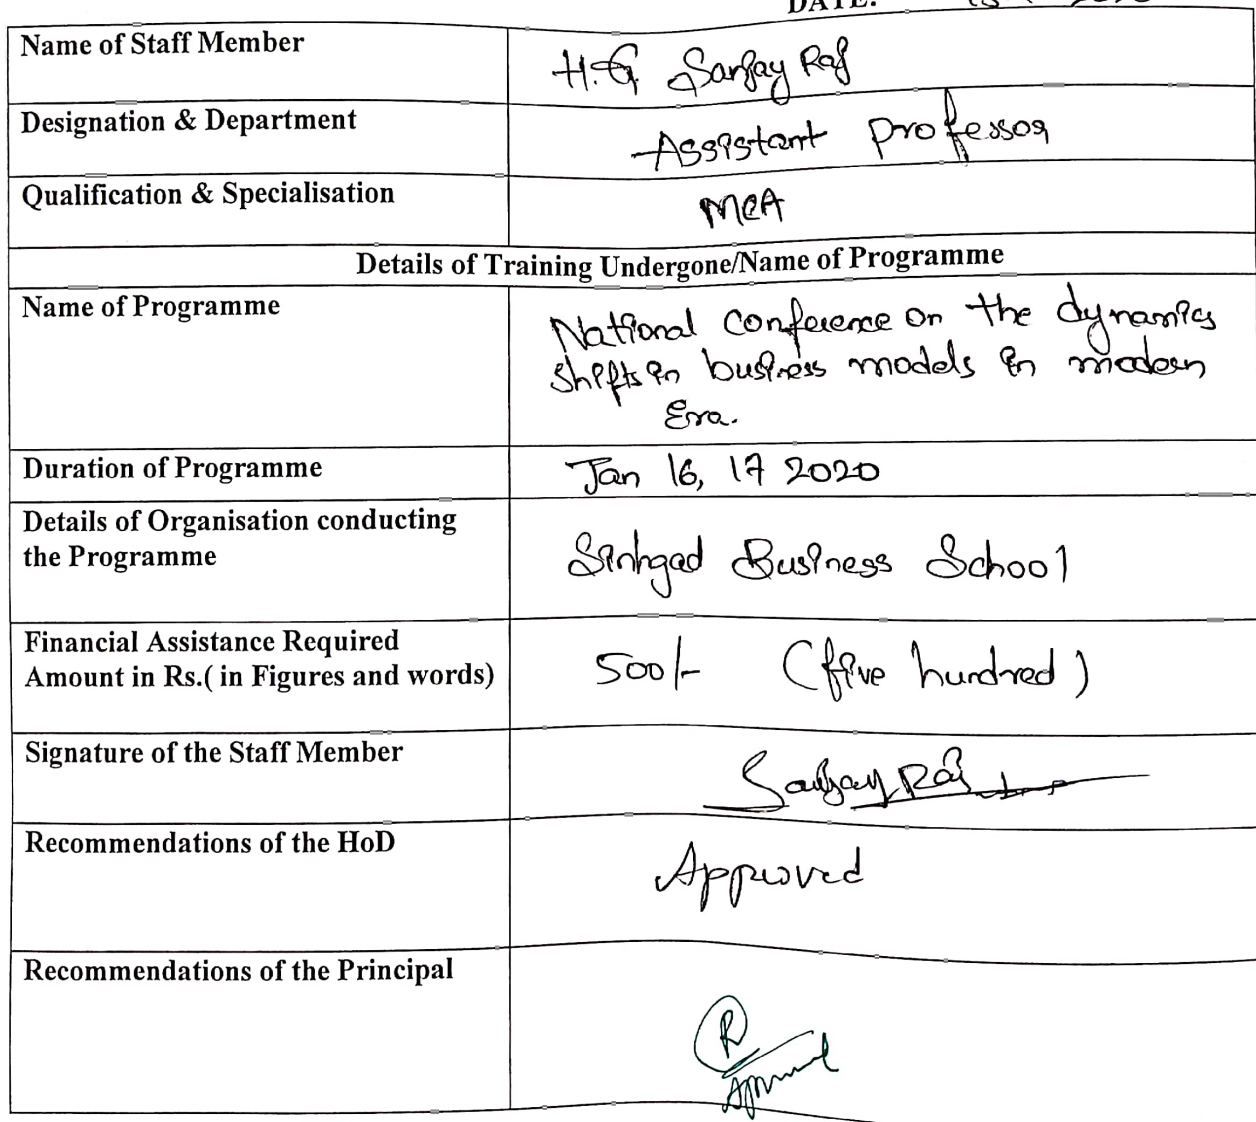 DATE:
Name of Staff Member
H.G. Sanjay Raj
Designation & Department
Assistant professor
Qualification & Specialisation
MCA
Details of Training Undergone/Name of Programme
Name of Programme
National Conference on the dynamics
shifts in business models in modern
Era.
Duration of Programme
Jan 16, 17 2020
Details of Organisation conducting
the Programme
Sinhgad Business School
Financial Assistance Required
Amount in Rs.( in Figures and words)
500/- (five hundred)
Signature of the Staff Member
Sanjay Raj
Recommendations of the HoD
Approved
Recommendations of the Principal
R
Approved